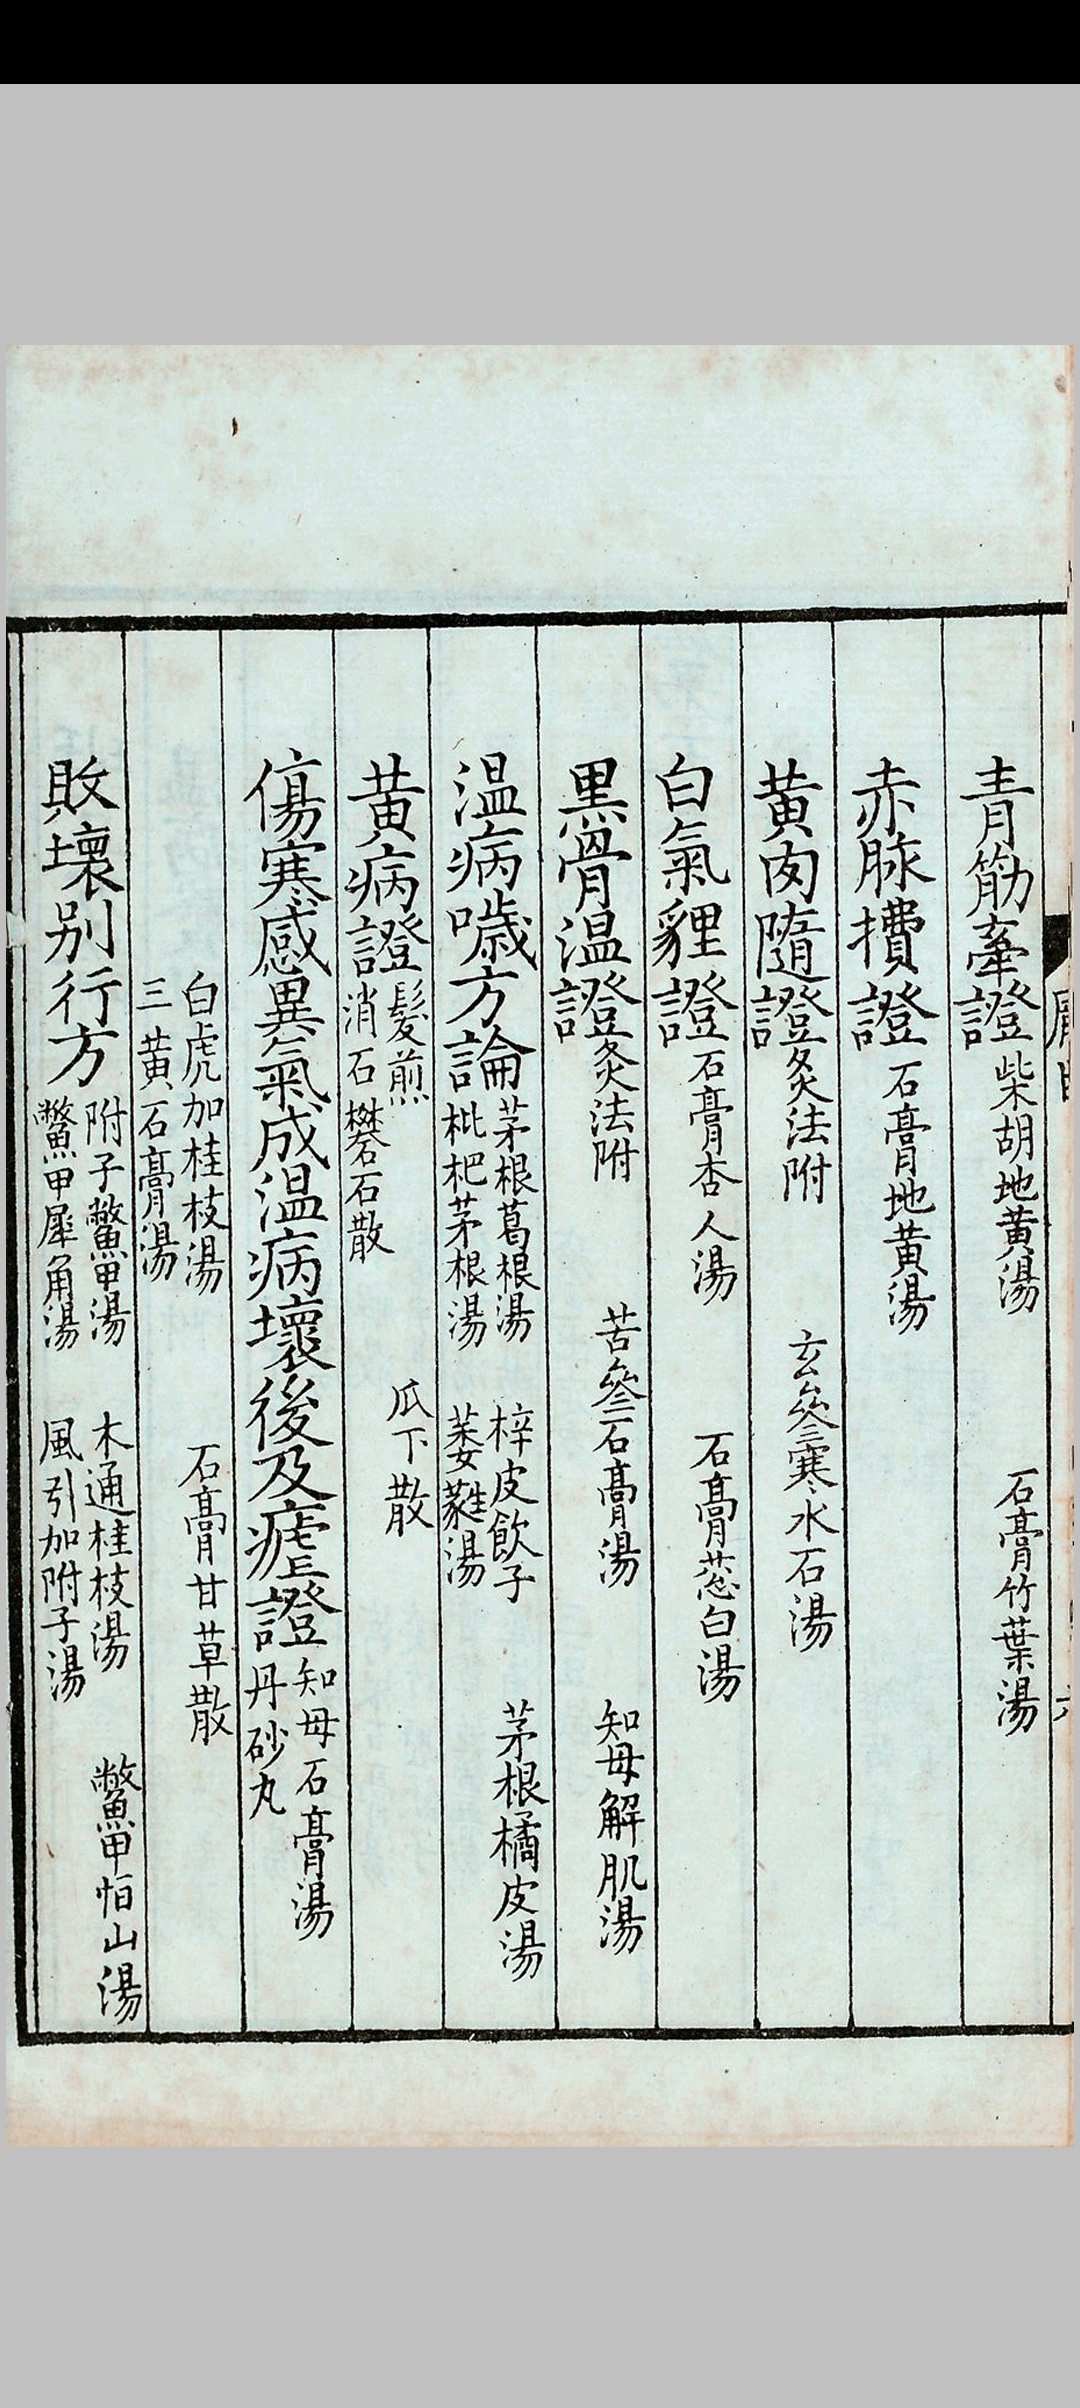 青筋牽證 柴胡地黄湯 石膏竹葉湯
赤脉攢證 石膏地黄湯
黄肉隨證 灸法附 玄參寒水石湯
白氣貍證 石膏杏人湯 石膏葱白湯
黒骨温證 灸法附 苦參石膏湯 知母解肌湯
温病噦方論 茅根葛根湯 梓皮飲子 茅根橘皮湯
枇杷茅根湯 萎蕤湯
黄病證 髮煎 瓜下散
消石礬石散
傷寒感異氣成温病壞後及瘧證 知母石膏湯
丹砂丸
白虎加桂枝湯 石膏甘草散
三黄石膏湯
敗壞别行方 附子鱉甲湯 木通桂枝湯 鱉甲恒山湯
鱉甲犀角湯 風引加附子湯